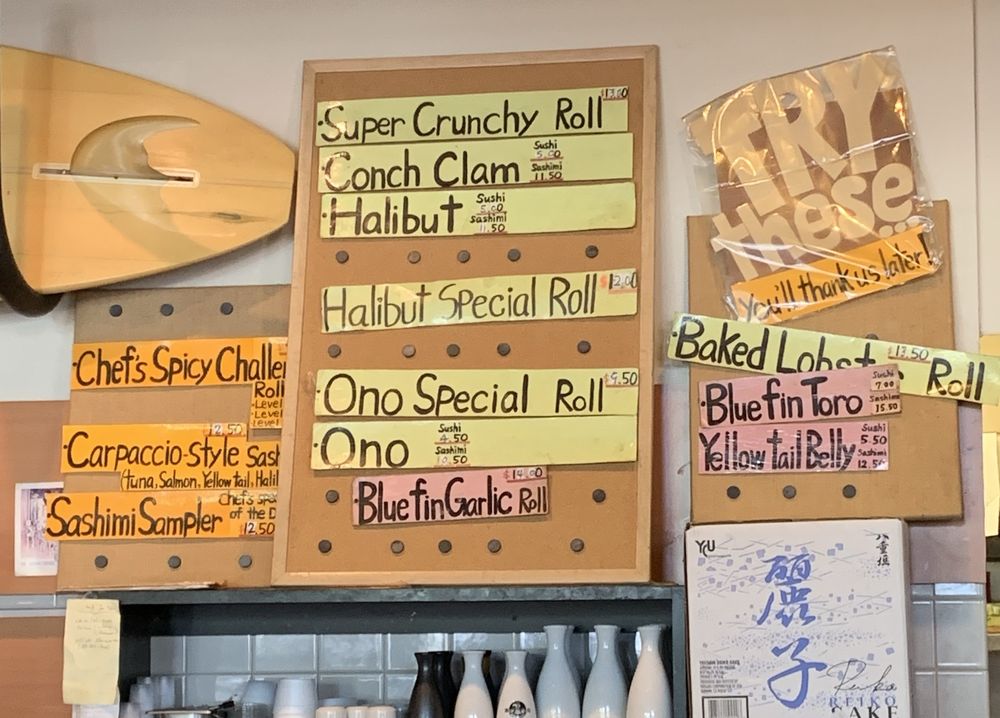 Chef's Spicy Challe
Roll
Level
Level
Level
$12.50
Carpaccio-Style Sash
(tuna, Salmon, Yellow tail, Hali
Sashimi Sampler
Chef's spe
of the D
$12.50
·Super Crunchy Roll $13.00
·Conch Clam Sushi 5.00
Sashimi 11.50
·Halibut Sushi 5.00
Sashimi 11.50
Halibut Special Roll $12.00
·Ono Special Roll $9.50
·Ono Sushi 4.50
Sashimi 10.50
·Bluefin Garlic Roll $14.00
TRY
these...
You'll thank us later!
·Baked Lobst Roll $13.50
·Bluefin Toro Sushi 7.00
Sashimi 15.50
Yellow tail Belly Sushi 5.50
Sashimi 12.50
八重垣
麗
子
Reiko
REIKO
SAKE